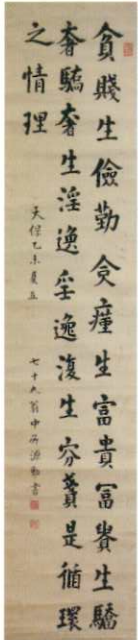 貧賤生儉勤僉廑生富貴冨貴生驕
奢驕奢生淫逸婬逸復生貧賤是循環
之情理
天保乙未夏五
七十九翁中井源 書